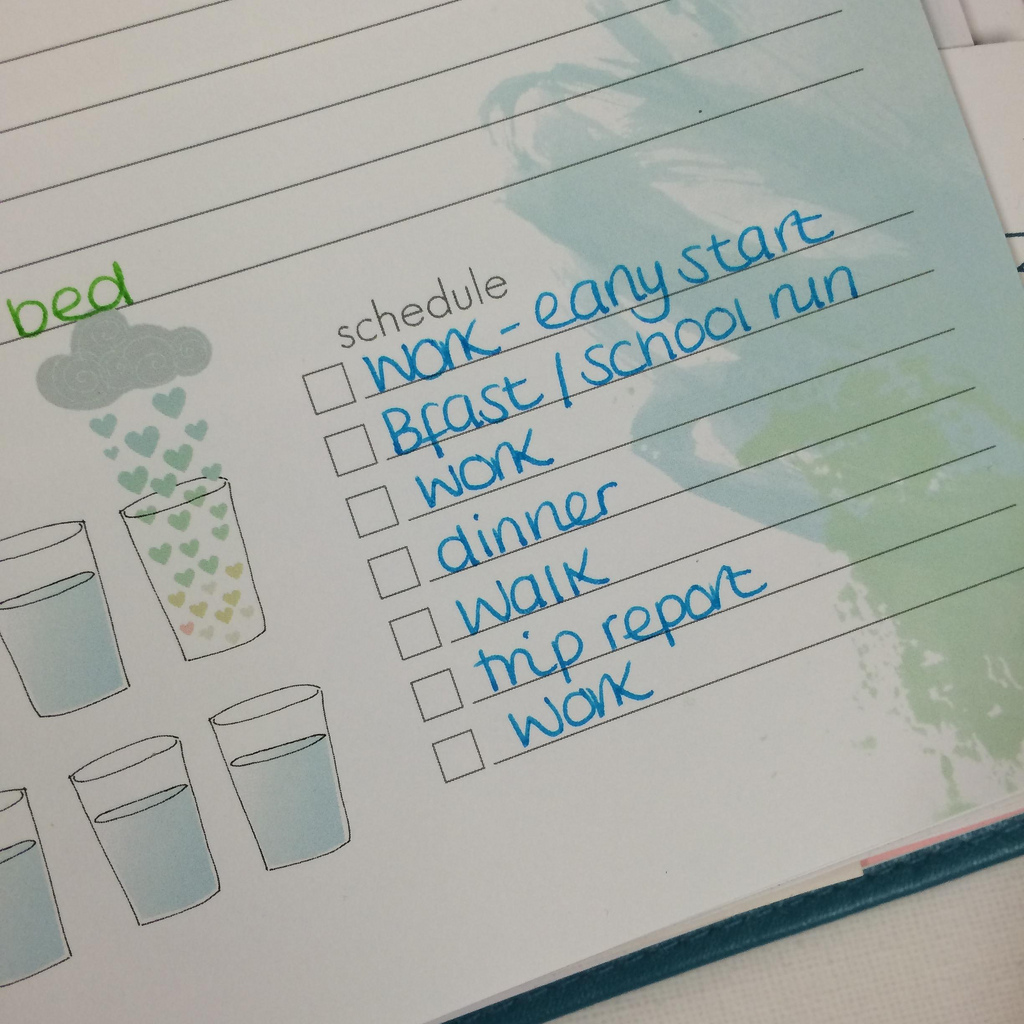 bed
schedule
work - early start
Bfast / school run
work
dinner
walk
trip report
work